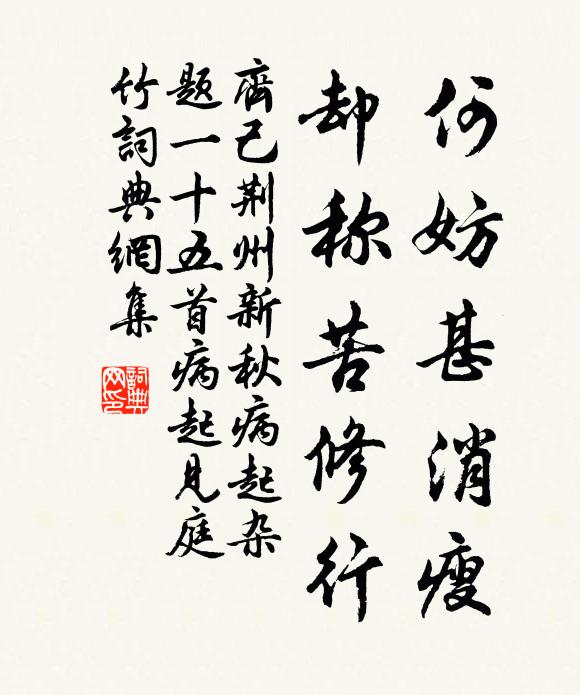 何妨甚消瘦
却称苦修行
齊己荆州新秋病起杂
题一十五首病起見庭
竹詞典網集
詞典网印